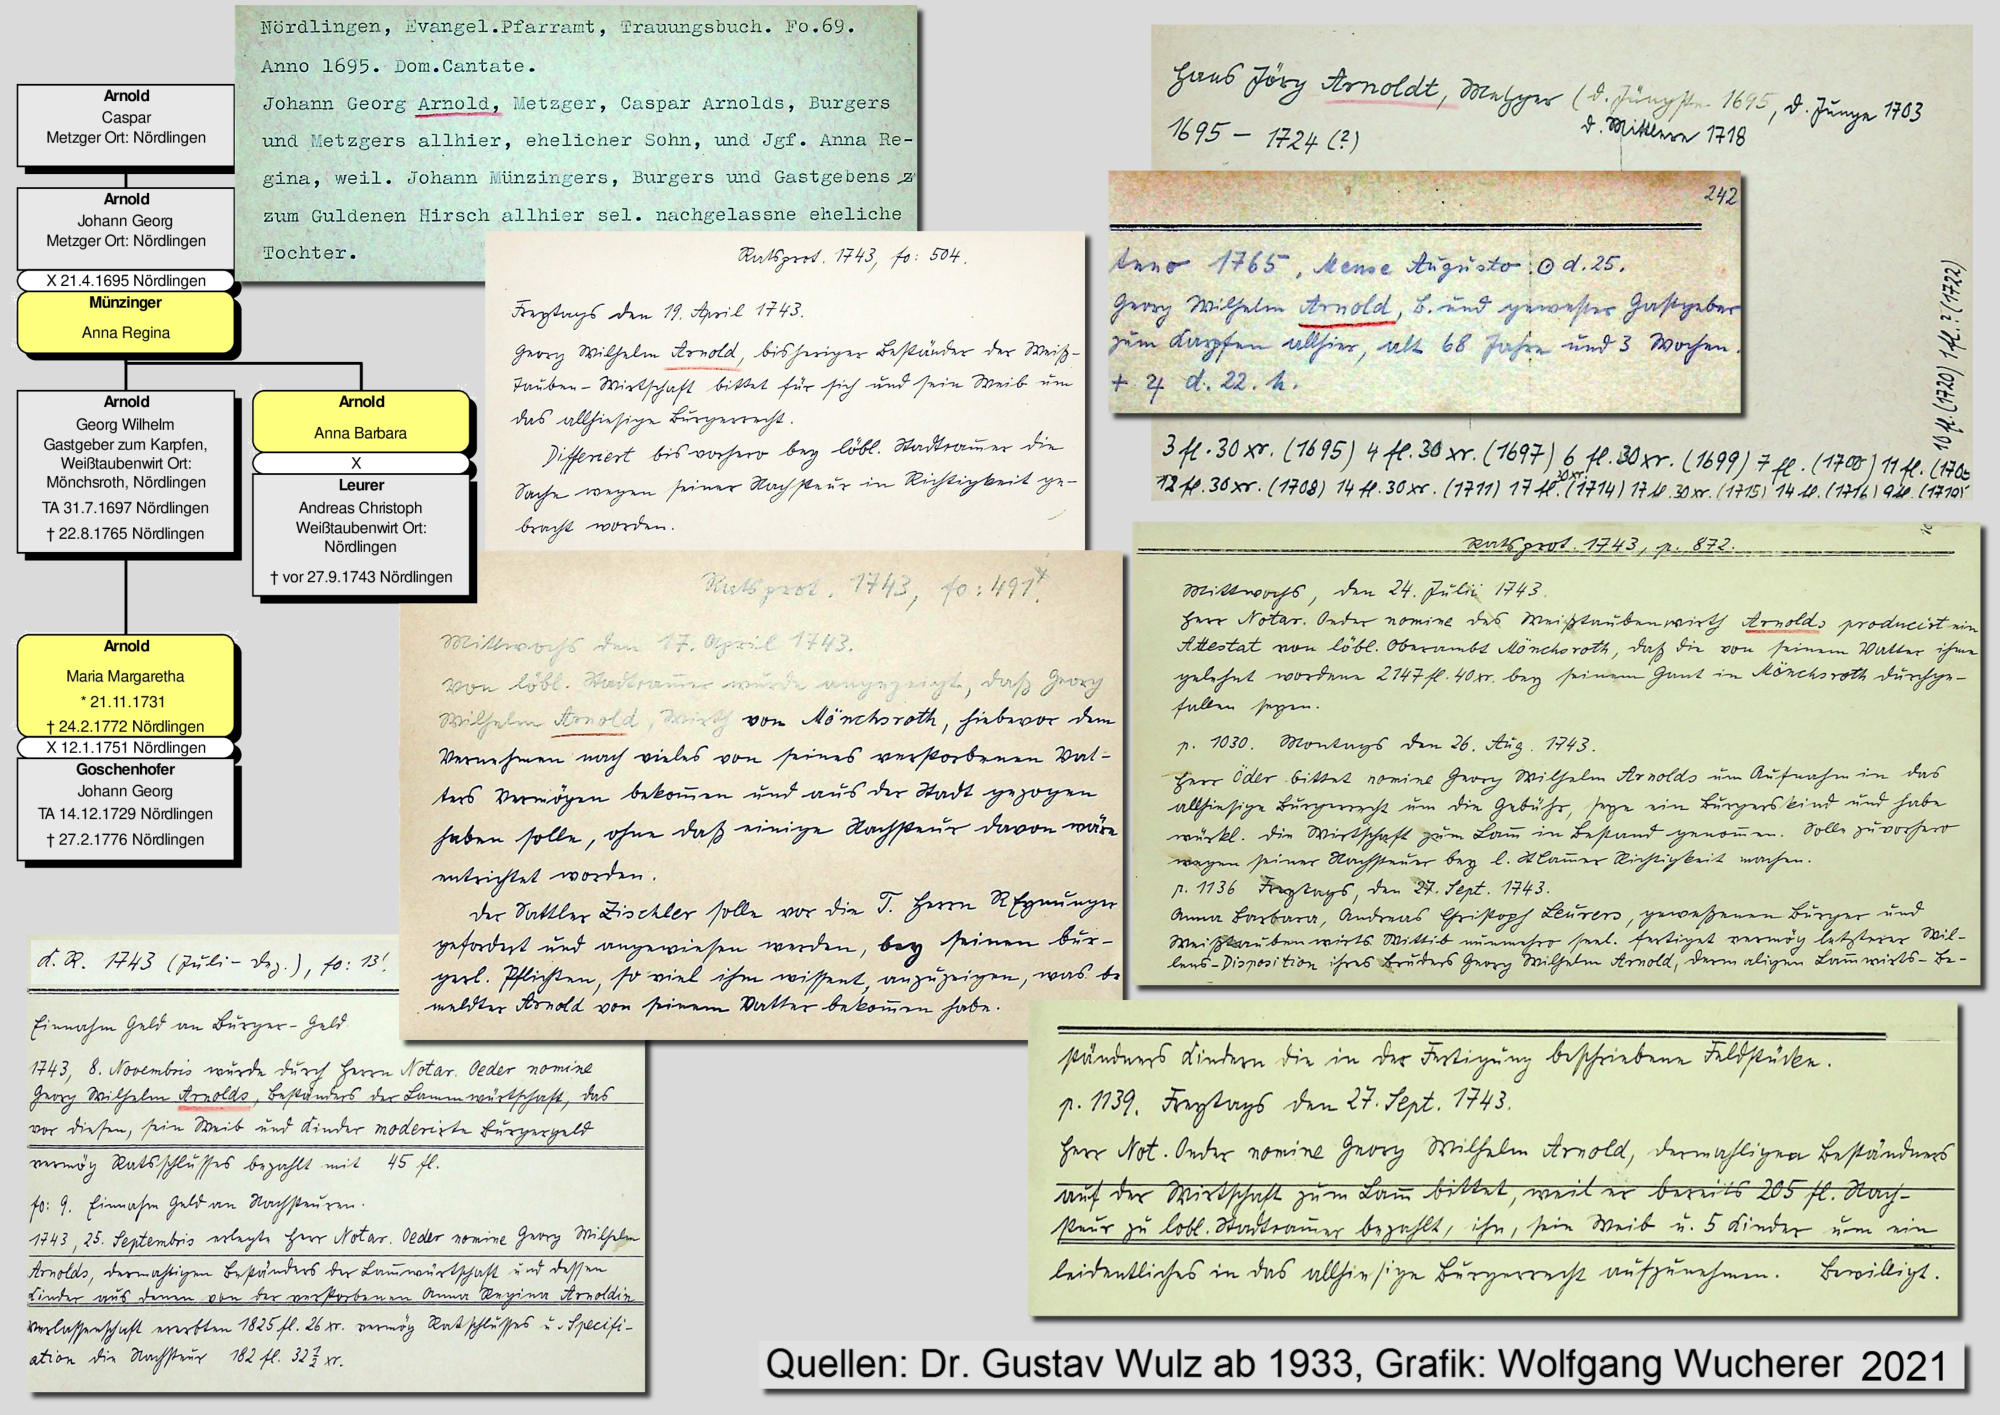 Arnold
Caspar
Metzger Ort: Nördlingen
Arnold
Johann Georg
Metzger Ort: Nördlingen
X 21.4.1695 Nördlingen
Münzinger
Anna Regina
Arnold
Georg Wilhelm
Gastgeber zum Karpfen,
Weißtaubenwirt Ort:
Mönchsroth, Nördlingen
TA 31.7.1697 Nördlingen
† 22.8.1765 Nördlingen
Arnold
Anna Barbara
X
Leurer
Andreas Christoph
Weißtaubenwirt Ort:
Nördlingen
† vor 27.9.1743 Nördlingen
Arnold
Maria Margaretha
* 21.11.1731
† 24.2.1772 Nördlingen
X 12.1.1751 Nördlingen
Goschenhofer
Johann Georg
TA 14.12.1729 Nördlingen
† 27.2.1776 Nördlingen
Nördlingen, Evangel.Pfarramt, Trauungsbuch. Fo.69.
Anno 1695. Dom.Cantate.
Johann Georg Arnold, Metzger, Caspar Arnolds, Burgers
und Metzgers allhier, ehelicher Sohn, und Jgf. Anna Re-
gina, weil. Johann Münzingers, Burgers und Gastgebens z
zum Guldenen Hirsch allhier sel. nachgelassne eheliche
Tochter.
Ratsprot. 1743, fo: 504.
Freytags den 19. April 1743.
Georg Wilhelm Arnold, bisheriger Beständer der Weiß-
Tauben-Wirtschaft bittet für sich und sein Weib um
das allhiesige Bürgerrecht.
Differiert bis vorhero bey löbl. Stadtcam̅er die
Sache wegen seiner Nachsteur in Richtigkeit ge-
bracht worden.
Ratsprot. 1743, fo: 491'.
Mittwochs den 17. April 1743.
Von löbl. Stadtcam̅er wurde angezeigt, daß Georg
Wilhelm Arnold, Wirth von Mönchsroth, hiebevor dem
Vernehmen nach vieles von seines verstorbenen Vat-
ters Vermögen bekom̅en und aus der Stadt gezogen
haben solle, ohne daß einige Nachsteur davon wäre
entrichtet worden.
Der Sattler Zischler solle vor die T. Herrn
gefordert und angewiesen werden, bey seinen bür-
gerl. Pflichten, so viel ihm wissent, anzuzeigen, was be
meldter Arnold von seinem Vatter bekom̅en habe.
K. R. 1743 (Juli - Dez.), fo: 13'.
Einnahm Geld an Bürger-Geld
1743, 8. Novembris wurde durch Herrn Notar. Oeder nomine
Georg Wilhelm Arnolds, Beständers der Lammwürtschaft, das
vor diesen, sein Weib und Kinder moderirte Bürgergeld
vermög Ratsschlusses bezahlt mit 45 fl.
fo: 9. Einnahm Geld an Nachsteuren.
1743, 25. Septembris erlegte Herr Notar. Oeder nomine Georg Wilhelm
Arnolds, dermahligen Beständers der Lam̅würtschaft und dessen
Kinder aus denen von der verstorbenen Anna Regina Arnoldin
Verlassenschaft ererbten 1825 fl. 26 xr. vermög Ratschlusses u. Specifi-
ation die Nachsteur 182 fl. 32 ½ xr.
Hans Jörg Arnoldt, Metzger (d. Jüngste 1695, d. Junge 1703
d. Mittlere 1718
1695 - 1724 (?)
242
Anno 1765, Mense Augusto ☉ d. 25.
Georg Wilhelm Arnold, B. und gewester Gastgeber
zum Karpfen allhier, alt 68 Jahre und 3 Wochen.
+ ♃ d. 22. h.
10 fl. (1720) 1 fl.? (1722)
3 fl. 30 xr. (1695) 4 fl. 30 xr. (1697) 6 fl. 30 xr. (1699) 7 fl. (1700) 11 fl. (1702
12 fl. 30 xr. (1708) 14 fl. 30 xr. (1711) 17 fl. 30 xr. (1714) 17 fl. 30 xr. (1715) 14 fl. (1716) 9 fl. (1719)
Ratsprot. 1743, p. 872.
Mittwochs, den 24. Julii 1743.
Herr Notar. Oeder nomine des Weißtaubenwirth Arnolds producirt ein
Attestat von löbl. Oberambt Mönchsroth, daß die von seinem Vatter ihme
gelehnt wordene 2147 fl. 40 xr. bey seinem Gant in Mönchsroth durchge-
fallen seyen.
p. 1030. Montags den 26. Aug. 1743.
Herr Öder bittet nomine Georg Wilhelm Arnolds um Aufnahm in das
allhiesige Bürgerrecht um die Gebühr, seye ein Burgerskind und habe
würkl. die Wirtschaft zum Lam̅ in Bestand genom̅en. Solle zuvorhero
wegen seiner Nachsteuer bey l. StCam̅er Richtigkeit machen.
p. 1136 Freytags, den 27. Sept. 1743.
Anna Barbara, Andreas Christoph Leurers, geweßenen Bürger und
Weißtaubenwirts Wittib nunmehro seel. fertiget vermög letzterer Wil-
lens-Disposition ihres Bruders Georg Wilhelm Arnold, dermaligen Lam̅wirts-Be-
ständners Kindern die in der Fertigung beschriebene Feldstücke.
p. 1139. Freytags den 27. Sept. 1743.
Herr Not. Oeder nomine Georg Wilhelm Arnold, dermahligen Beständners
auf der Wirtschaft zum Lam̅ bittet, weil er bereits 205 fl. Nach-
steur zu löbl. Stadtcam̅er bezahlt, ihn, sein Weib u. 5 Kinder um ein
leidentliches in das allhiesige Bürgerrecht aufzunehmen. Bewilligt.
Quellen: Dr. Gustav Wulz ab 1933, Grafik: Wolfgang Wucherer 2021